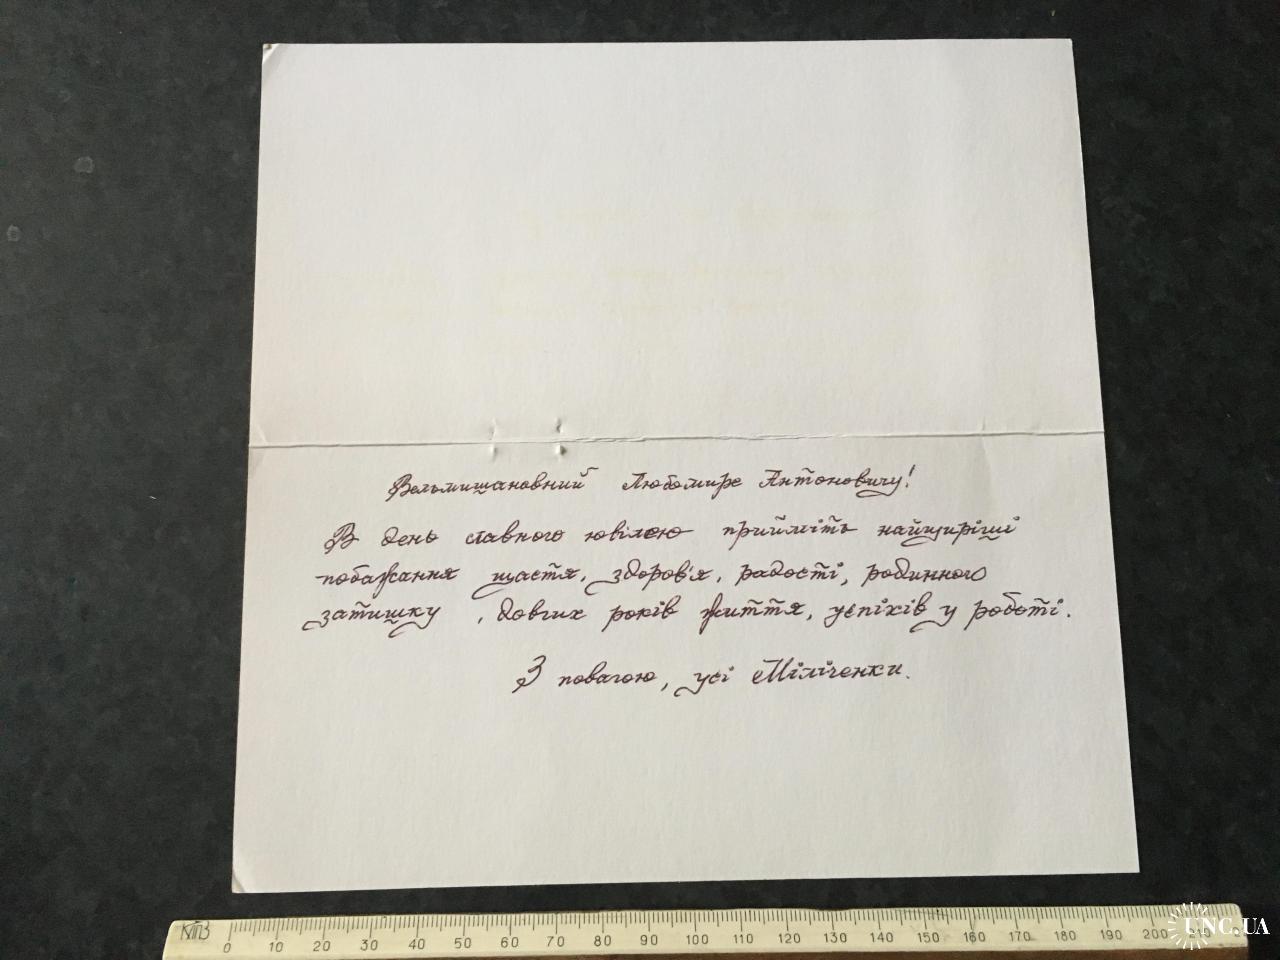 Вельмишановний Любомире Антоновичу!
В день славного ювілею прийміть найщиріші
побажання щастя, здоров'я, радості, родинного
затишку, довгих років життя, успіхів у роботі.
З повагою, усі Міліченки.
КПЗ
0 10 20 30 40 50 60 70 80 90 100 110 120 130 140 150 160 170 180 190 200 210
UNC.UA